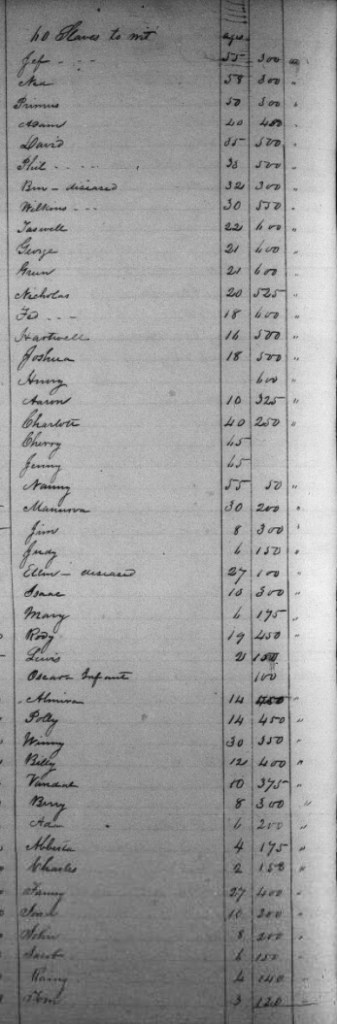 60 Slaves to wit ages
Jef - - - 55 300 "
Ned 58 300 "
Primus 50 300 "
Adam 40 450 "
David 35 500 "
Phil - - - - 35 500 "
Ben - diseased 32 300 "
Wilkins - - - 30 550 "
Taswell 22 600 "
George 21 600 "
Green 21 600 "
Nicholas 20 525 "
Fed - - - - 18 600 "
Hartwell 16 500 "
Joshua 18 500 "
Henry 600 "
Aaron 10 325 "
Charlotte 40 250 "
45
Jenny 65
Nanny 55 50 "
30 200 "
Jim 8 300 "
Judy 6 150 "
Ellen - diseased 27 100 "
Isaac 10 300 "
Mary 6 175 "
Rody 19 450 "
Lewis 2 150
Oscar Infant 100
Almira 14 450 "
Polly 14 450 "
Winny 30 350 "
Billy 12 400 "
10 375 "
Berry 8 300 "
Ad 6 200 "
4 175 "
Charles 2 150 "
Fanny 27 400 "
10 200 "
John 8 200 "
Jacob 6 150 "
4 140 "
Tom 3 120 "